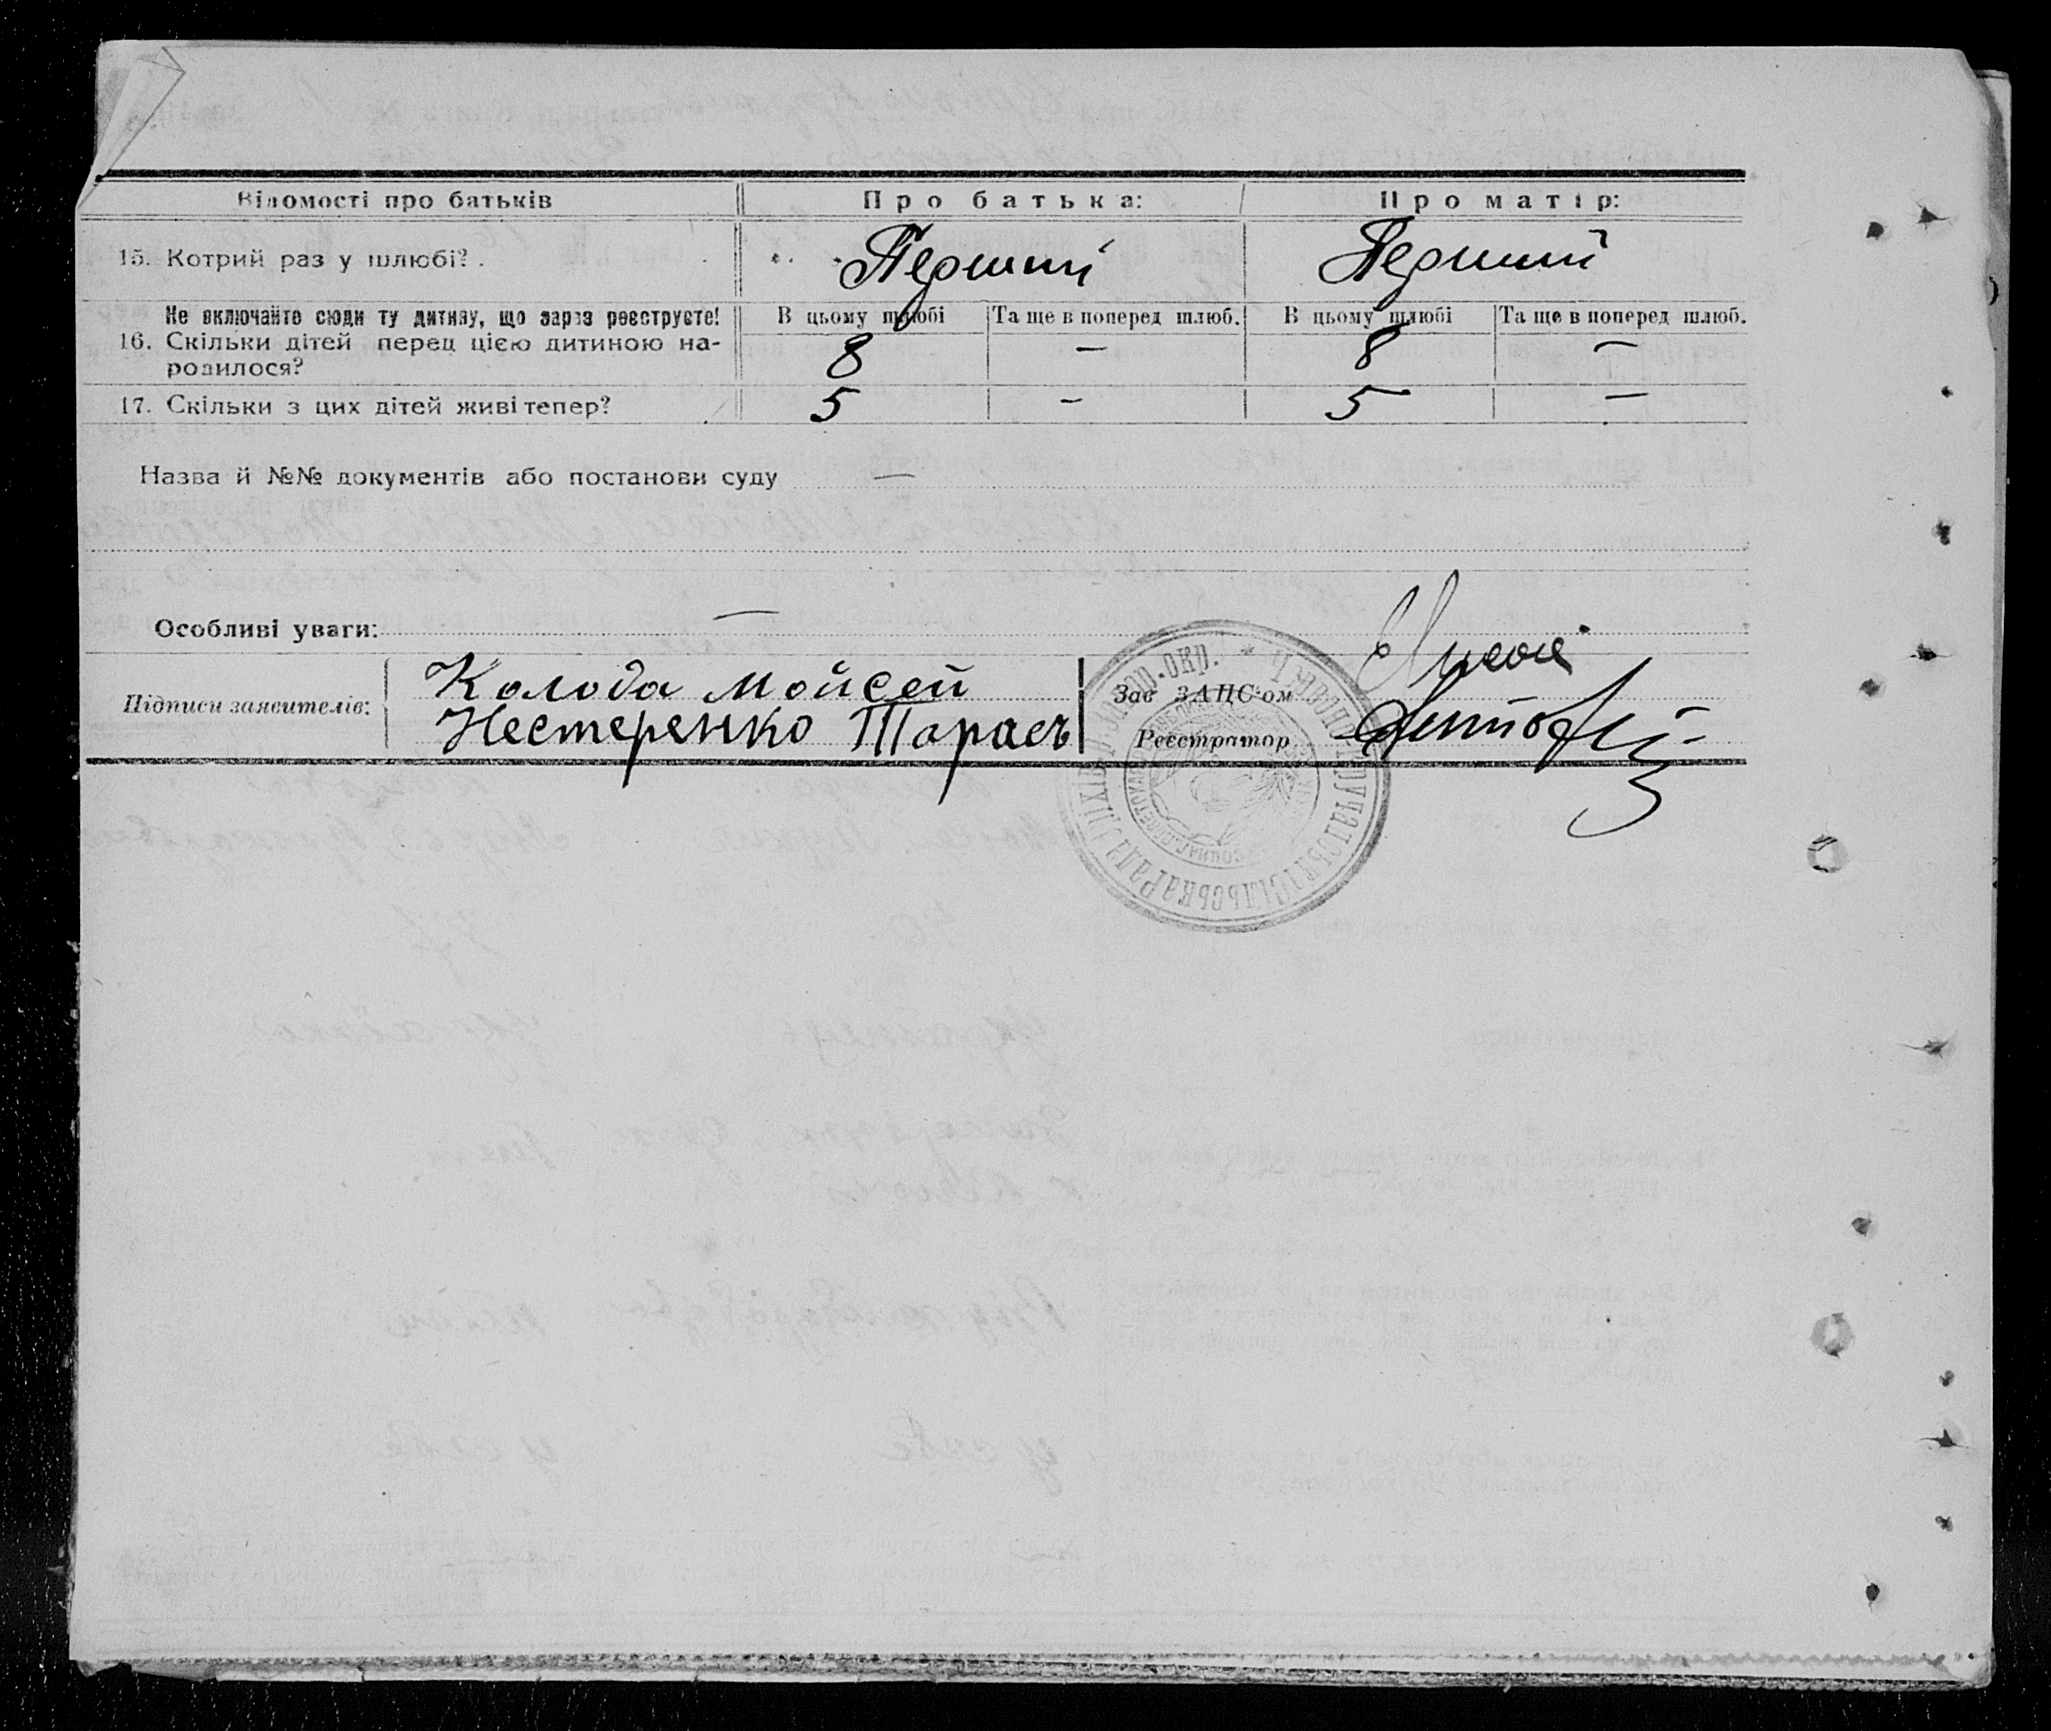 Відомості про батьків Про батька: Про матір:
15. Котрий раз у шлюбі? Перший Перший
Не включайте сюди ту дитину, що зараз реєструєте! В цьому шлюбі Та ще в поперед шлюб. В цьому шлюбі Та ще в поперед шлюб.
16. Скільки дітей перед цією дитиною на-
родилося? 8 — 8 —
17. Скільки з цих дітей живі тепер? 5 — 5 —
Назва й №№ документів або постанови суду —
Особливі уваги: —
Підписи заявителів: Колода Мойсей Зав ЗАПС'ом
Нестеренко Тарасъ Реєстратор